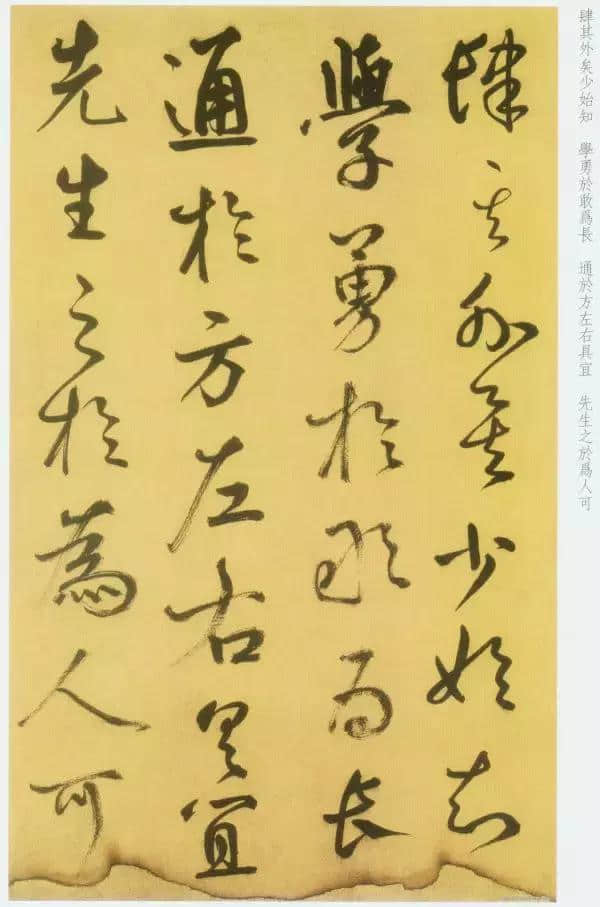 肆其外矣少始知　學勇於敢爲長　通於方左右具宜　先生之於爲人可
肆其外矣少始知
學勇於敢為長
通於方左右具宜
先生之於為人可